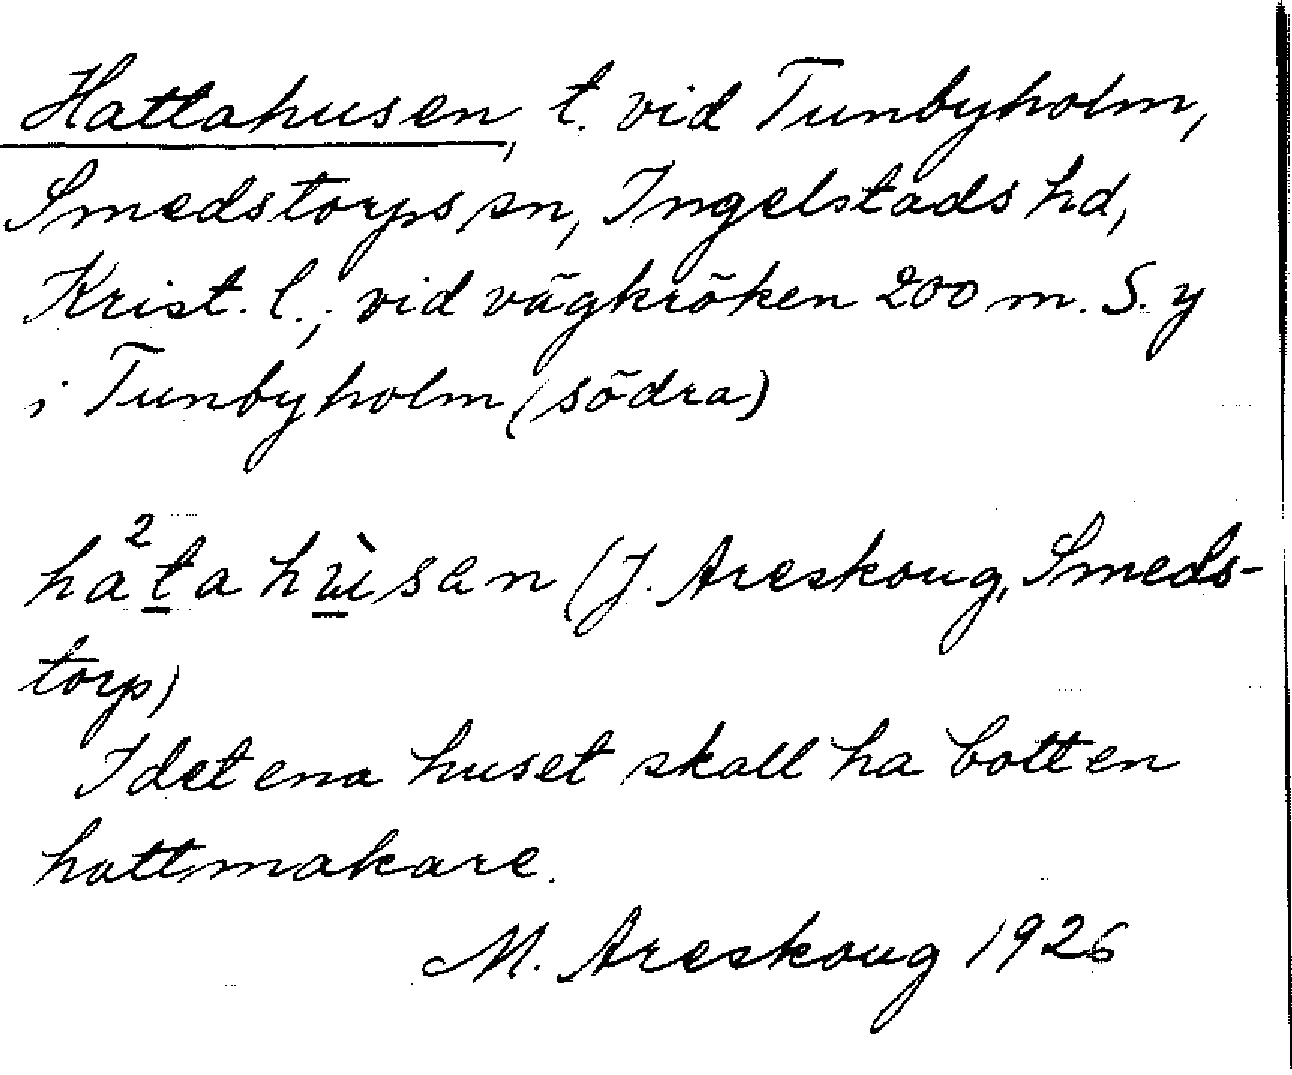 Hattahusen, t. vid Tunbyholm,
Smedstorps sn, Ingelstads hd,
Krist. l., vid vägkröken 200 m. S. y
i Tunbyholm (södra)
ha²ta hùsan (J. Areskoug, Smeds-
torp)
I det ena huset skall ha bott en
hattmakare.
M. Areskoug 1926